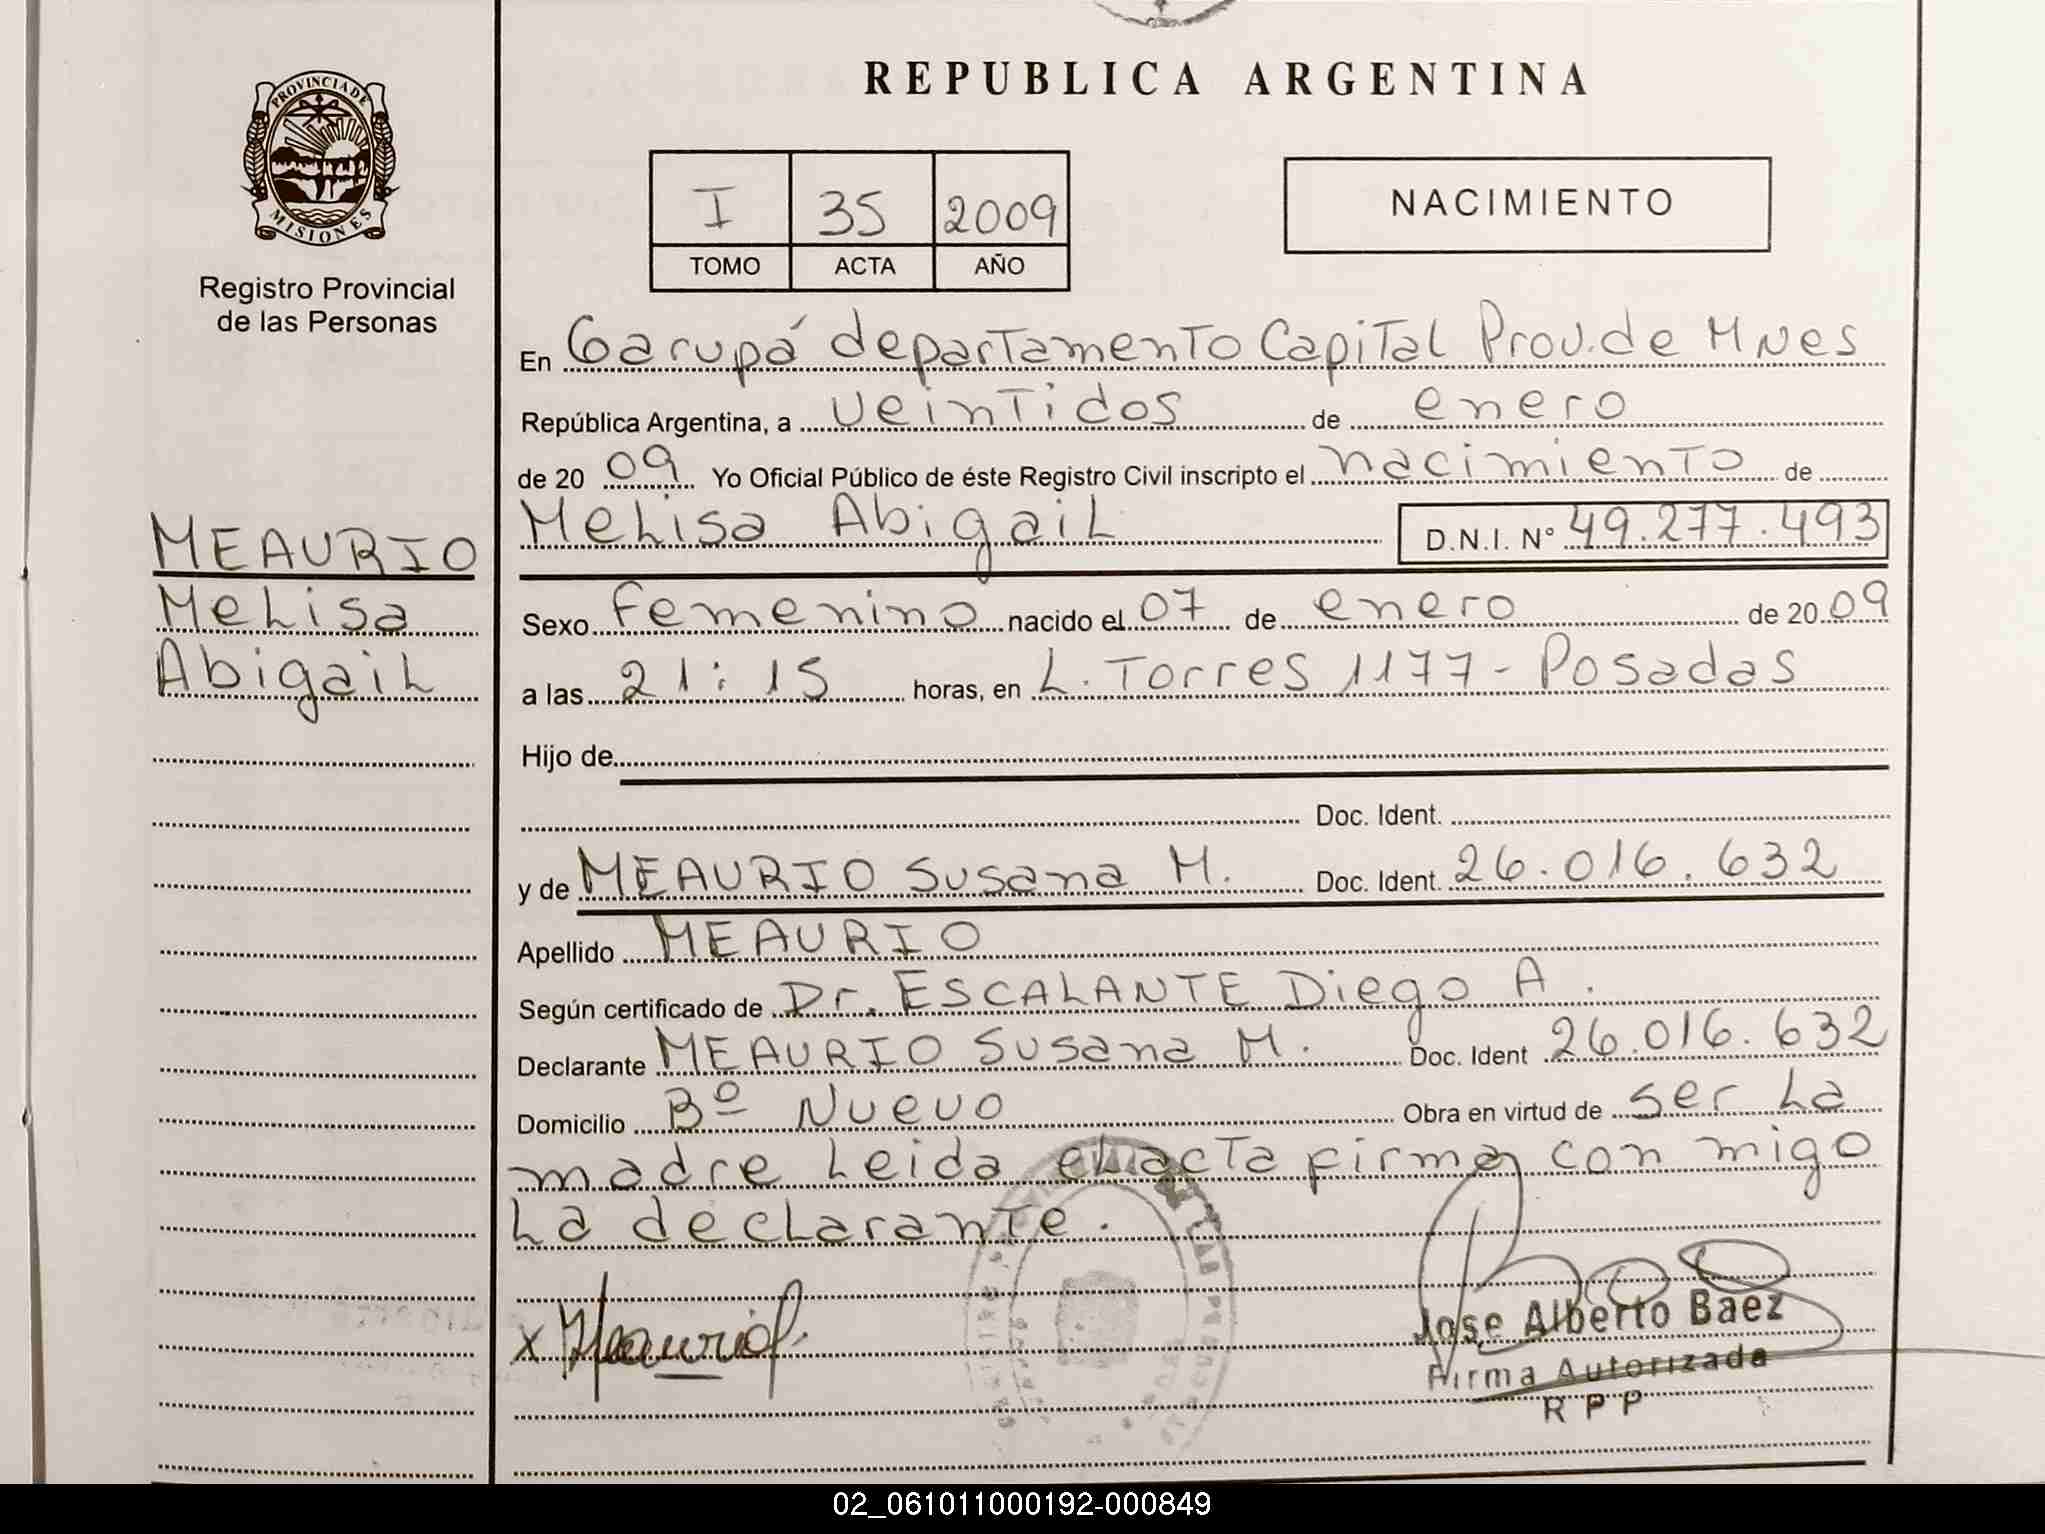 REPUBLICA ARGENTINA
PROVINCIA DE
MISIONES
Registro Provincial
de las Personas
I 35 2009
TOMO ACTA AÑO
NACIMIENTO
En Garupá departamento Capital Prov. de Mnes
República Argentina, a veintidos de enero
de 20 09 Yo Oficial Público de éste Registro Civil inscripto el nacimiento de
MEAURIO
Melisa
Abigail
Melisa Abigail D.N.I. Nº 49.277.493
Sexo femenino nacido el 07 de enero de 20 09
a las 21:15 horas, en L. Torres 1177 - Posadas
Hijo de
Doc. Ident.
y de MEAURIO Susana M. Doc. Ident. 26.016.632
Apellido MEAURIO
Según certificado de Dr. ESCALANTE Diego A.
Declarante MEAURIO Susana M. Doc. Ident 26.016.632
Domicilio Bº Nuevo Obra en virtud de ser la
madre Leida el acta firma con migo
La declarante.
x Meaurio
Jose Alberto Baez
Firma Autorizada
R P P
02_061011000192-000849